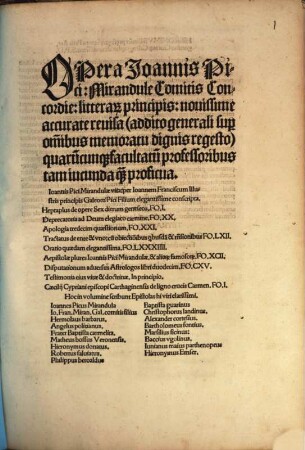 1
Opera Joannis Pi-
ci: Mirandule Comitis Con-
cordie: litterarũ principis: nouissime
accurate reuisa (addito generali sup
omībus memoratu dignis regesto)
quarũcunq̃ facultatũ professoribus
tam iucunda q̃ proficua.
Ioannis Pici Mirandulæ vita: per Ioannem Franciscum Illu
stris principis Galeotti Pici Filium elegantissime conscripta.
Heptaplus de opere Sex dierum geneseos, FO, I.
Deprecatoria ad Deum elegiaco carmine, FO, XX,
Apologia tredecim quæstionum, FO, XXI,
Tractatus de ente & vno: cũ obiectiōibus qbusdã & rñsionibus FO, LII,
Oratio quædam elegantissima, FO, LXXXIIII,
Aepistolæ plures Ioannis Pici Mirandulæ, & alitæ: FO, XCII,
Disputationum aduersus Astrologos libri duodecim, FO, CXV.
Testimonia eius vitæ & doctrinæ, In principio,
Cæcilij Cypriani episcopi Carthaginensis de ligno crucis Carmen, FO, I
Hoc in volumine scribunt Epistolas hi viri clarissimi.
Ioannes Picus Mirandula
Io, Fran, Miran, Gal, comitis filius
Hermolaus barbarus,
Angelus politianus,
Frater Baptista carmelita,
Matheus bossus Veronensis,
Hieronymus donatus,
Robertus saluiatus,
Philippus beroaldus
Baptista guarinus
Christophorus landinus,
Alexander cortesius,
Bartholomeus fontius,
Marsilius ficinus
Baccius vgolinus,
Iunianus maius parthenopeus
Hieronymus Emser,